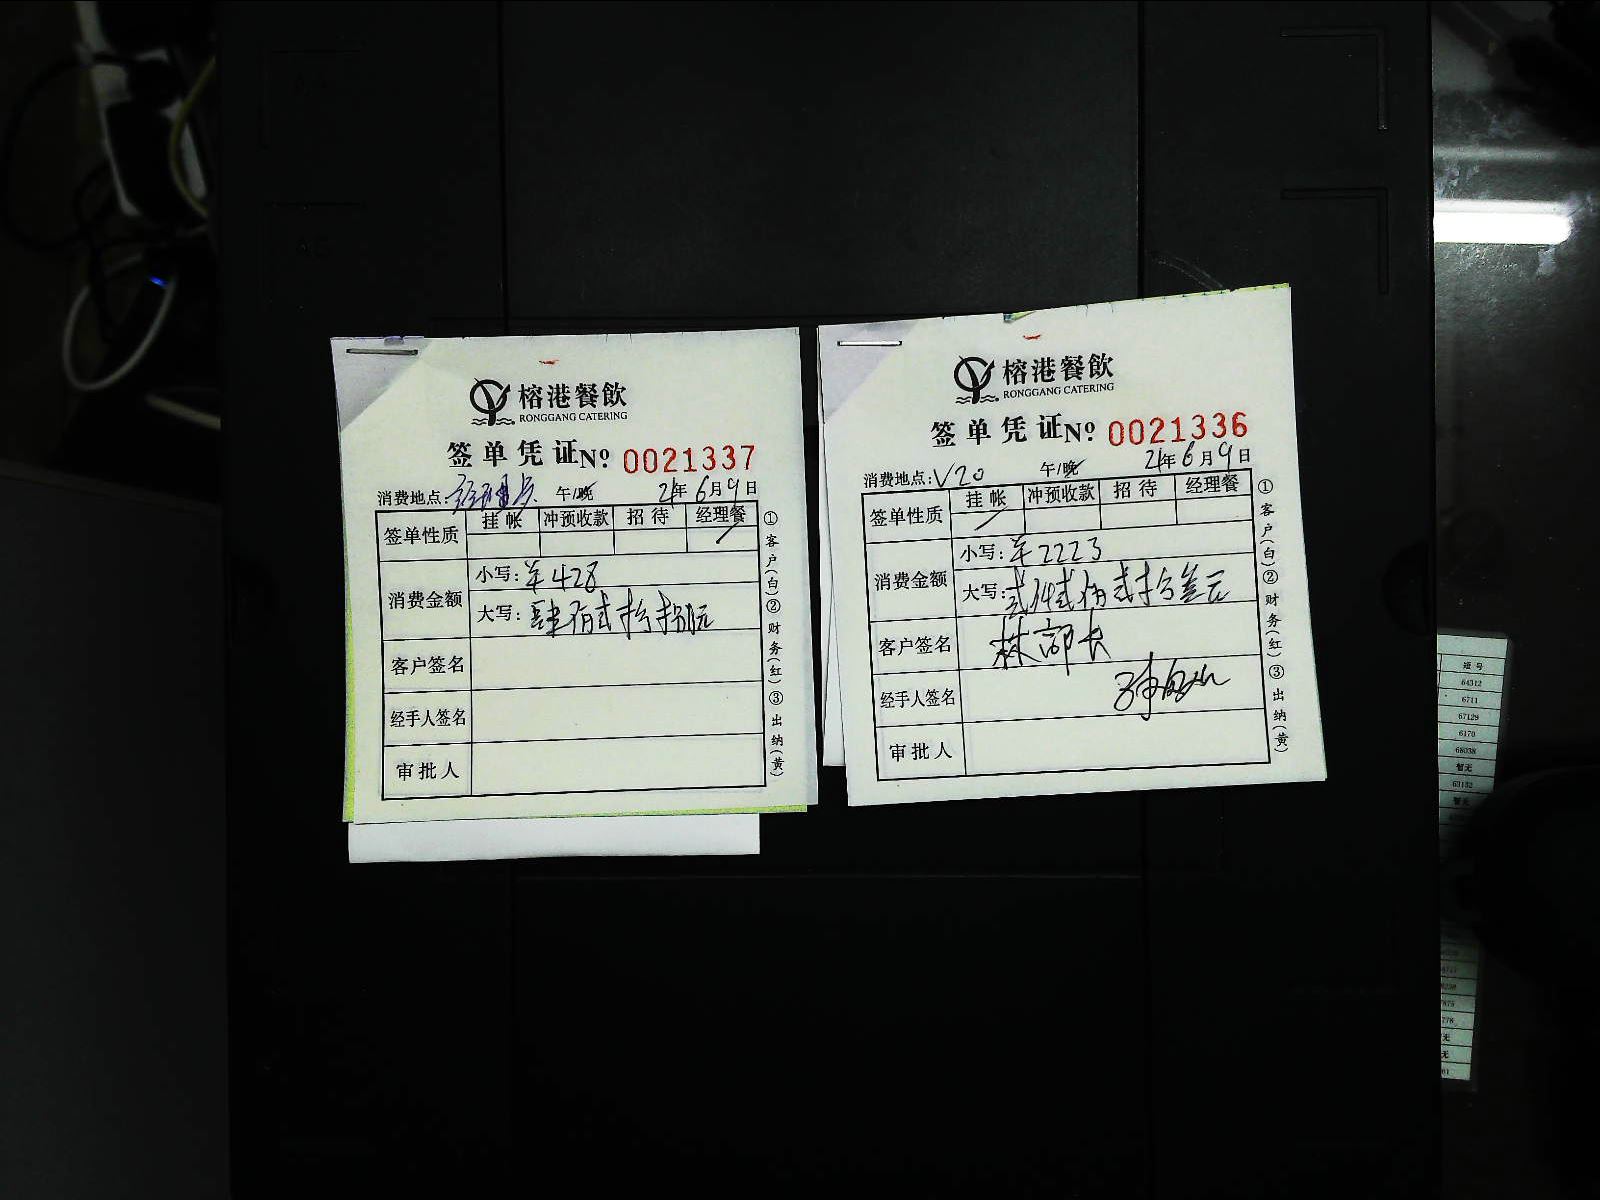 榕港餐飲
RONGGANG CATERING
签单凭证 No. 0021337
消费地点: 午/晚 21年6月9日
签单性质 挂帐 冲预收款 招待 经理餐
消费金额
小写: ¥428
大写: 肆佰式拾捌元
客户签名
经手人签名
审批人
①客户(白)②财务(红)③出纳(黄)
榕港餐飲
RONGGANG CATERING
签单凭证 No. 0021336
消费地点: V20 午/晚 21年6月9日
签单性质 挂帐 冲预收款 招待 经理餐
消费金额
小写: ¥2223
大写: 式仟式佰式拾叁元
客户签名 林部长
经手人签名
审批人
①客户(白)②财务(红)③出纳(黄)
短号
64312
6711
67129
6170
68038
暂无
63132
暂无